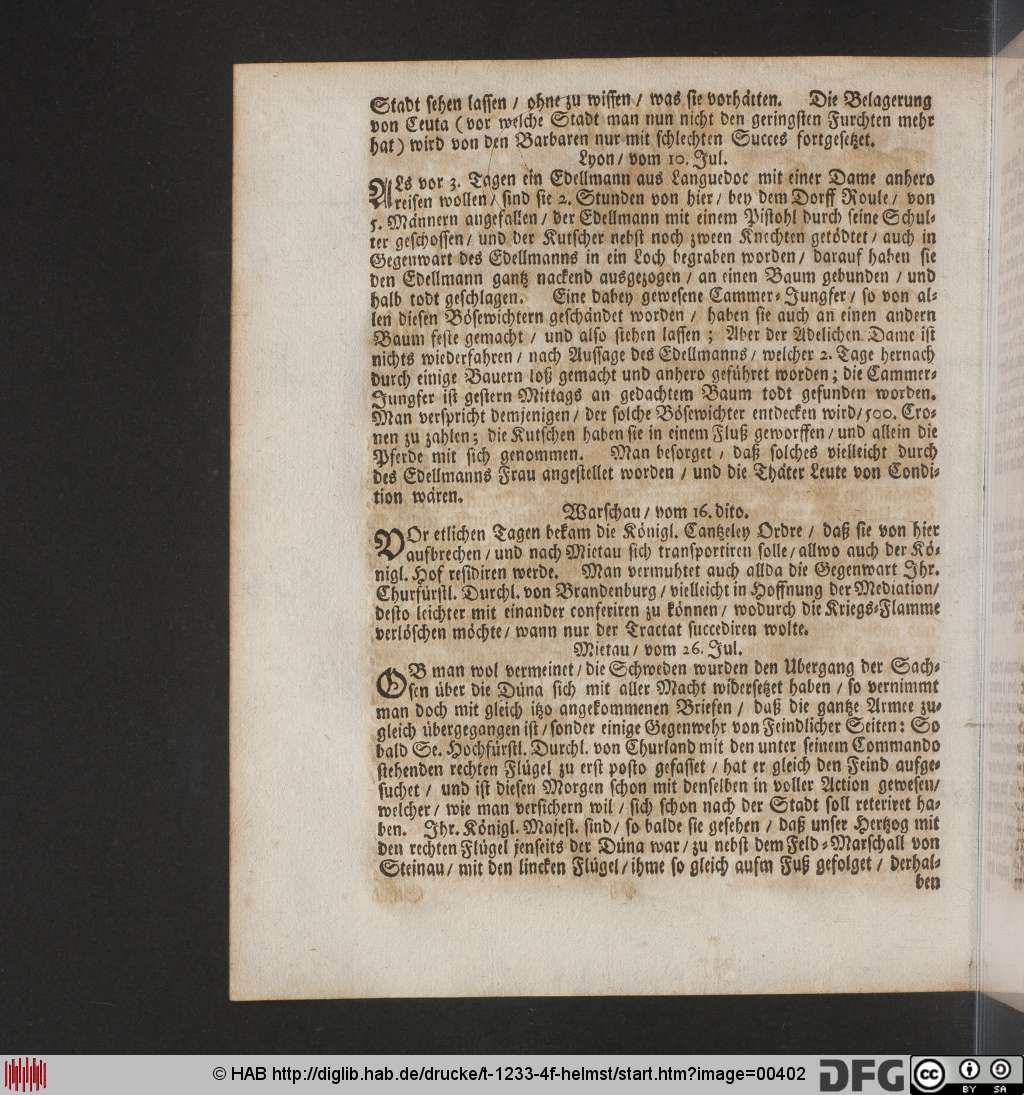 Stadt sehen lassen / ohne zu wissen / was sie vorhätten. Die Belagerung
von Ceuta (vor welche Stadt man nun nicht den geringsten Furchten mehr
hat) wird von den Barbaren nur mit schlechten Succes fortgesetzet.
Lyon / vom 10. Jul.
ALs vor 3. Tagen ein Edellmann aus Languedoc mit einer Dame anhero
reisen wollen / sind sie 2. Stunden von hier / bey dem Dorff Roule / von
5. Männern angefallen / der Edellmann mit einem Pistohl durch seine Schul-
ter geschossen / und der Kutscher nebst noch zween Knechten getödtet / auch in
Gegenwart des Edellmanns in ein Loch begraben worden / darauf haben sie
den Edellmann gantz nackend ausgezogen / an einen Baum gebunden / und
halb todt geschlagen. Eine dabey gewesene Cammer-Jungfer / so von al-
len diesen Bösewichtern geschändet worden / haben sie auch an einen andern
Baum feste gemacht / und also stehen lassen ; Aber der Adelichen Dame ist
nichts wiederfahren / nach Aussage des Edellmanns / welcher 2. Tage hernach
durch einige Bauern loß gemacht und anhero geführet worden ; die Cammer-
Jungfer ist gestern Mittags an gedachtem Baum todt gefunden worden.
Man verspricht demjenigen / der solche Bösewichter entdecken wird / 500. Cro-
nen zu zahlen ; die Kutschen haben sie in einem Fluß geworffen / und allein die
Pferde mit sich genommen. Man besorget / daß solches vielleicht durch
des Edellmanns Frau angestellet worden / und die Thäter Leute von Condi-
tion wären.
Warschau / vom 16. dito.
VOr etlichen Tagen bekam die Königl. Cantzeley Ordre / daß sie von hier
aufbrechen / und nach Mietau sich transportiren solle / allwo auch der Kö-
nigl. Hof residiren werde. Man vermuhtet auch allda die Gegenwart Ihr.
Churfürstl. Durchl. von Brandenburg / vielleicht in Hoffnung der Mediation /
desto leichter mit einander conferiren zu können / wodurch die Kriegs-Flamme
verlöschen möchte / wann nur der Tractat succediren wolte.
Mietau / vom 26. Jul.
OB man wol vermeinet / die Schweden wurden den Ubergang der Sach-
sen über die Düna sich mit aller Macht widersetzet haben / so vernimmt
man doch mit gleich itzo angekommenen Briefen / daß die gantze Armee zu-
gleich übergegangen ist / sonder einige Gegenwehr von Feindlicher Seiten : So
bald Se. Hochfürstl. Durchl. von Churland mit den unter seinem Commando
stehenden rechten Flügel zu erst posto gefasset / hat er gleich den Feind aufge-
suchet / und ist diesen Morgen schon mit denselben in voller Action gewesen /
welcher / wie man versichern wil / sich schon nach der Stadt soll reteriret ha-
ben. Ihr. Königl. Majest. sind / so balde sie gesehen / daß unser Hertzog mit
den rechten Flügel jenseits der Düna war / zu nebst dem Feld-Marschall von
Steinau / mit den lincken Flügel / ihme so gleich aufm Fuß gefolget / derhal-
ben
© HAB http://diglib.hab.de/drucke/t-1233-4f-helmst/start.htm?image=00402
DFG
cc BY SA